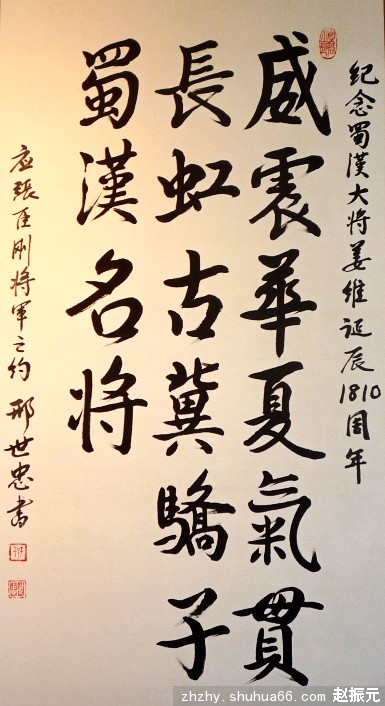 纪念蜀漢大将姜维诞辰1810周年
威震華夏氣貫
長虹古冀驕子
蜀漢名将
应張匡刚将军之约 邢世忠書
zhzhy.shuhua66.com 赵振元